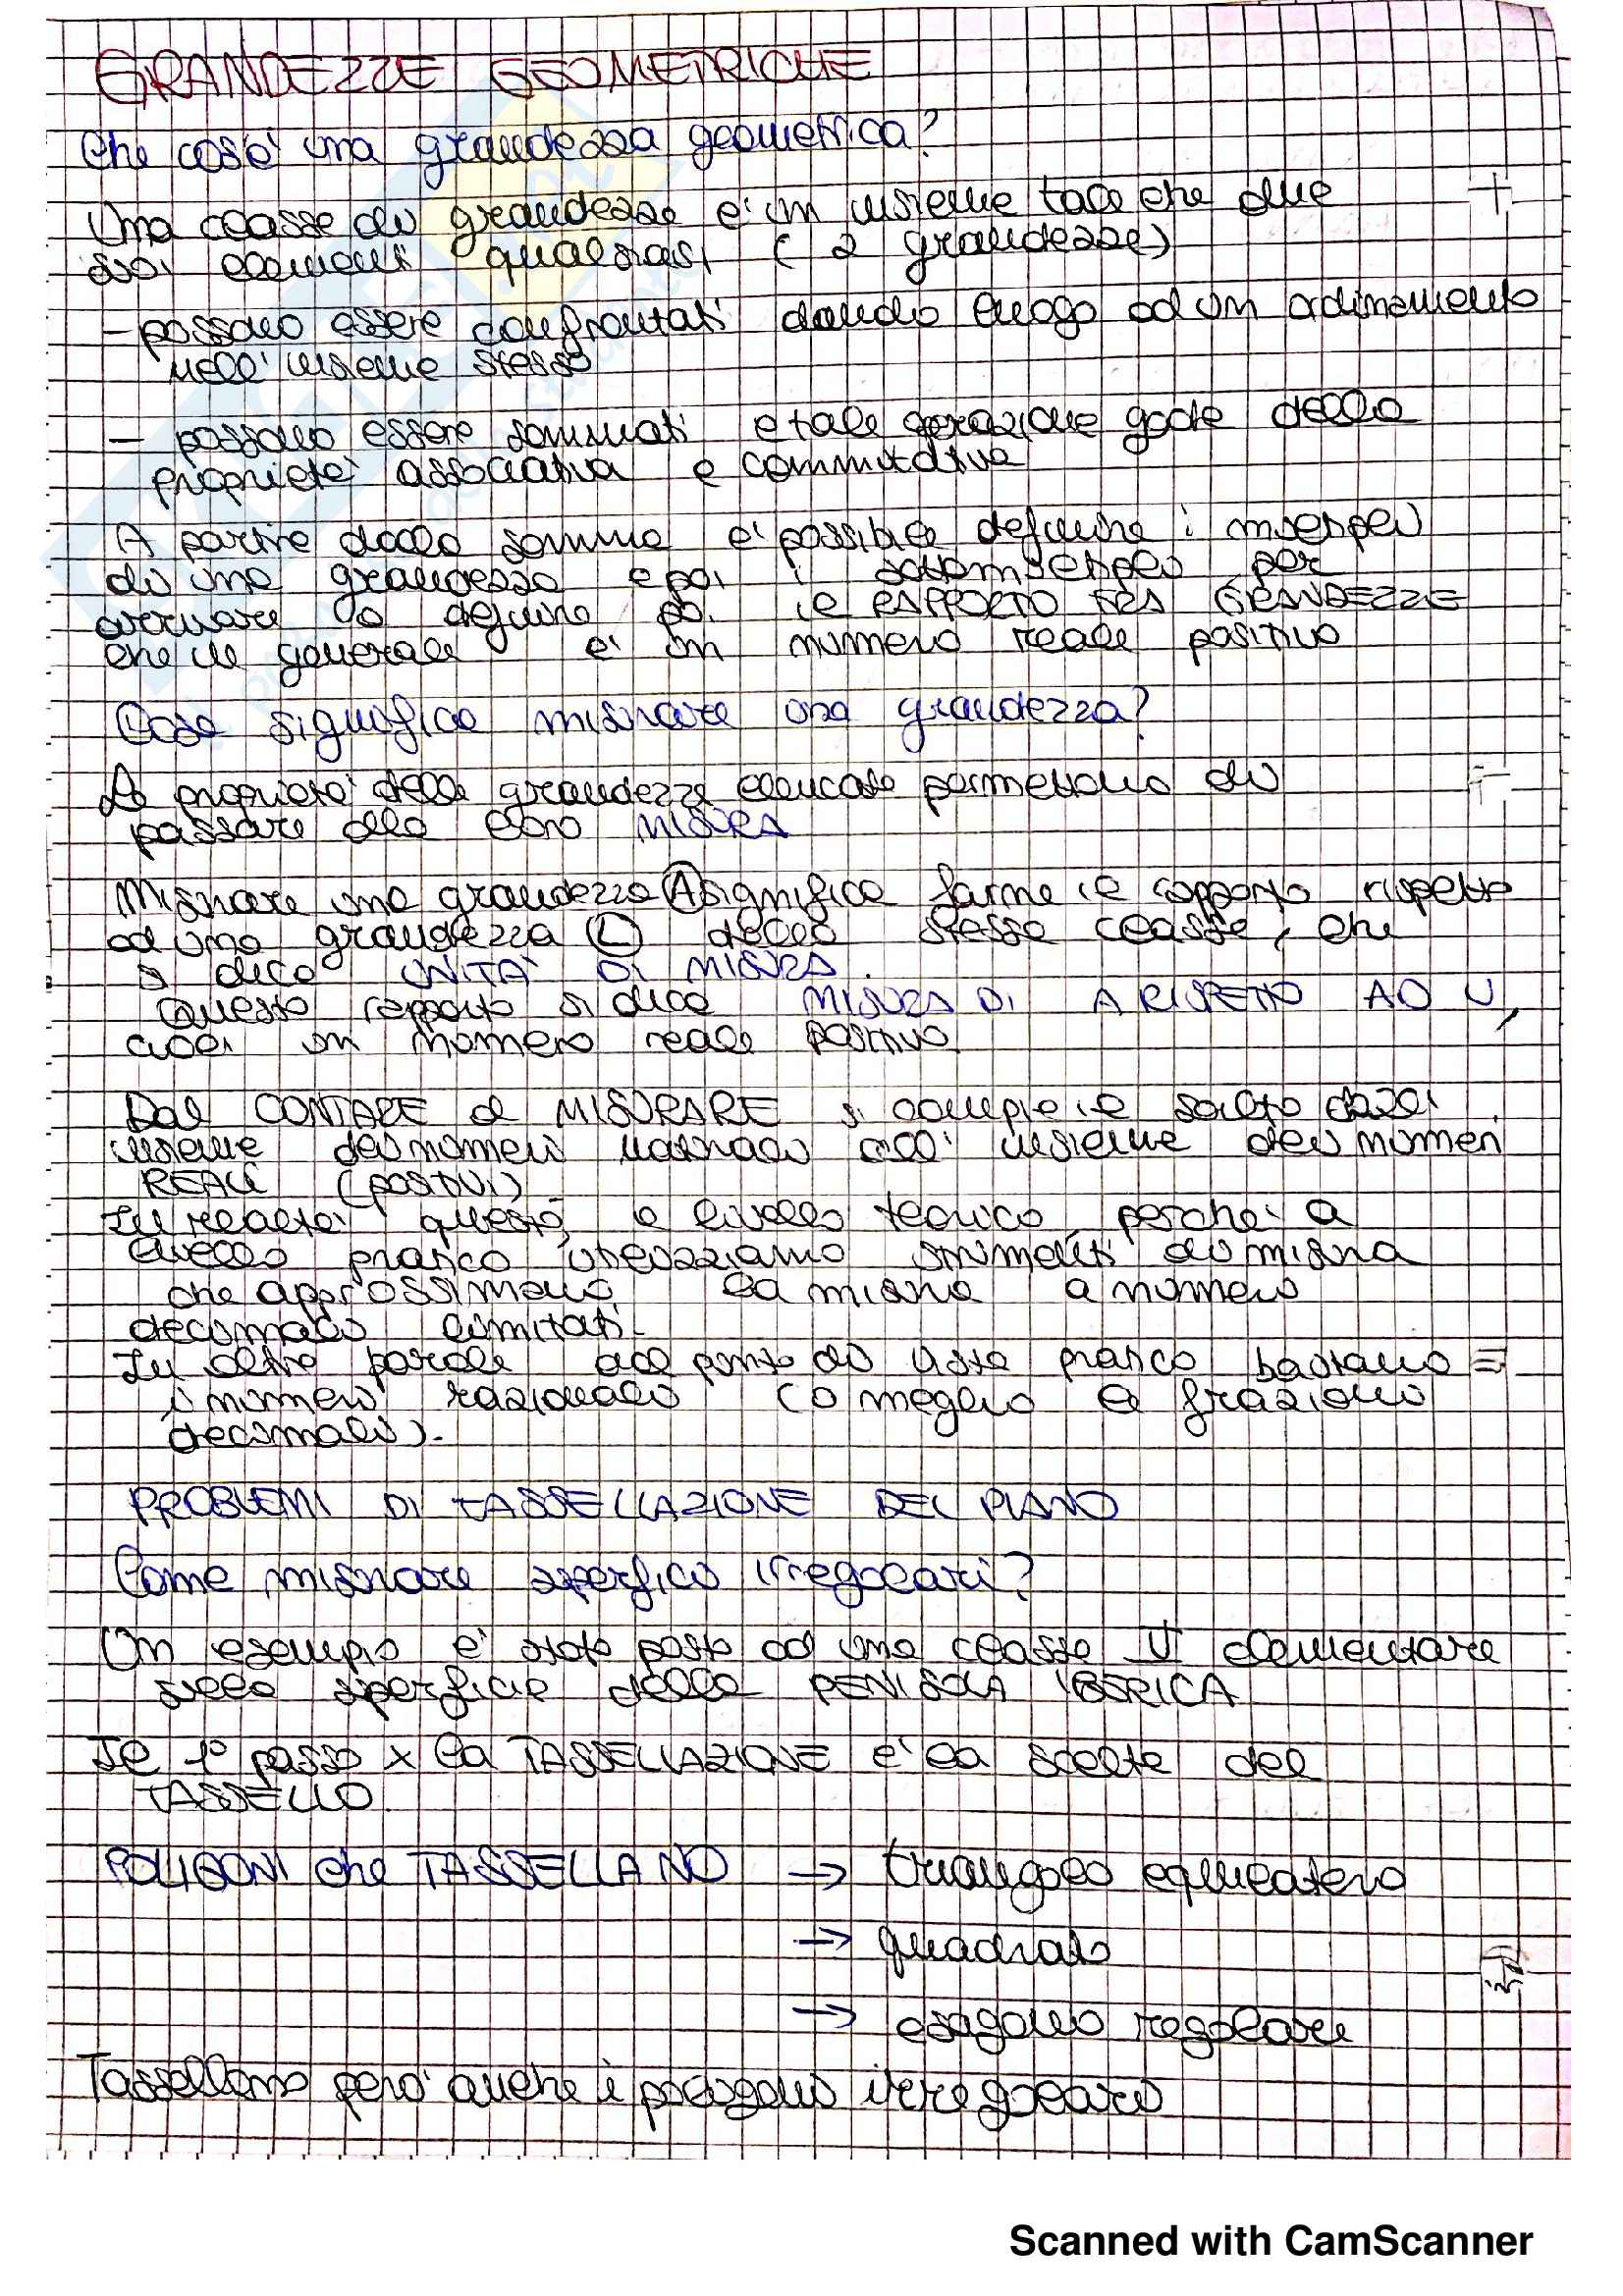 GRANDEZZE GEOMETRICHE
Che cos'è una grandezza geometrica?
Una classe di grandezze e' un insieme tale che due
suoi elementi qualsiasi ( 2 grandezze)
- possono essere confrontati dando luogo ad un ordinamento
nell' insieme stesso
- possono essere sommati e tale operazione gode della
proprietà associativa e commutativa
A partire dalla somma e' possibile definire i multipli
di una grandezza e poi i sottomultipli per
arrivare a definire poi il RAPPORTO TRA GRANDEZZE
che in generale e' un numero reale positivo
Cosa significa misurare una grandezza?
Le proprietà delle grandezze elencate permettono di
passare alla loro MISURA
Misurare una grandezza A significa farne il rapporto rispetto
ad una grandezza U della stessa classe, che
si dice UNITA' DI MISURA.
Questo rapporto si dice MISURA DI A RISPETTO AD U,
cioè un numero reale positivo.
Dal CONTARE al MISURARE si compie il salto dall'
insieme dei numeri naturali all' insieme dei numeri
REALI (positivi).
In realtà questo, a livello teorico, perché a
livello pratico utilizziamo strumenti di misura
che approssimano la misura a numeri
decimali limitati.
In altre parole dal punto di vista pratico bastano
i numeri razionali (o meglio le frazioni
decimali).
PROBLEMI DI TASSELLAZIONE DEL PIANO
Come misurare superfici irregolari?
Un esempio e' stato posto ad una classe V elementare
sulla superficie della PENISOLA IBERICA
Il 1° passo x la TASSELLAZIONE e' la scelta del
TASSELLO.
POLIGONI che TASSELLANO → triangolo equilatero
→ quadrato
→ esagono regolare
Tassellano però anche i poligoni irregolari
Scanned with CamScanner